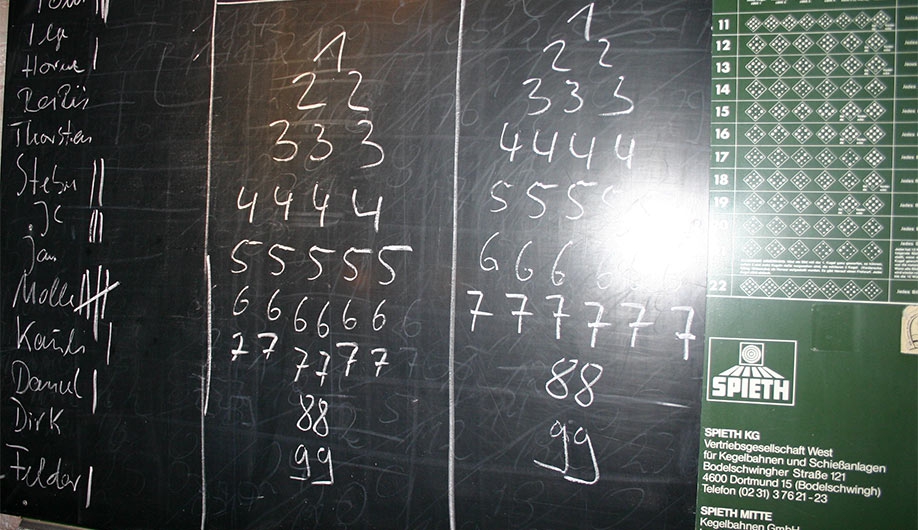 Thorsten
Stefan
Jan
Molle
Daniel
Dirk
Felder
1
2 2
3 3 3
4 4 4 4
5 5 5 5 5
6 6 6 6 6 6
7 7 7 7 7 7
88
99
1
2 2
3 3 3
4 4 4 4
5 5 5 5
6 6 6 6
7 7 7 7 7 7
88
99
11
12
13
14
15
16
17
18
19
22
SPIETH
SPIETH KG
Vertriebsgesellschaft West
für Kegelbahnen und Schießanlagen
Bodelschwingher Straße 121
4600 Dortmund 15 (Bodelschwingh)
Telefon (02 31) 3 76 21 - 23
SPIETH MITTE
Kegelbahnen GmbH